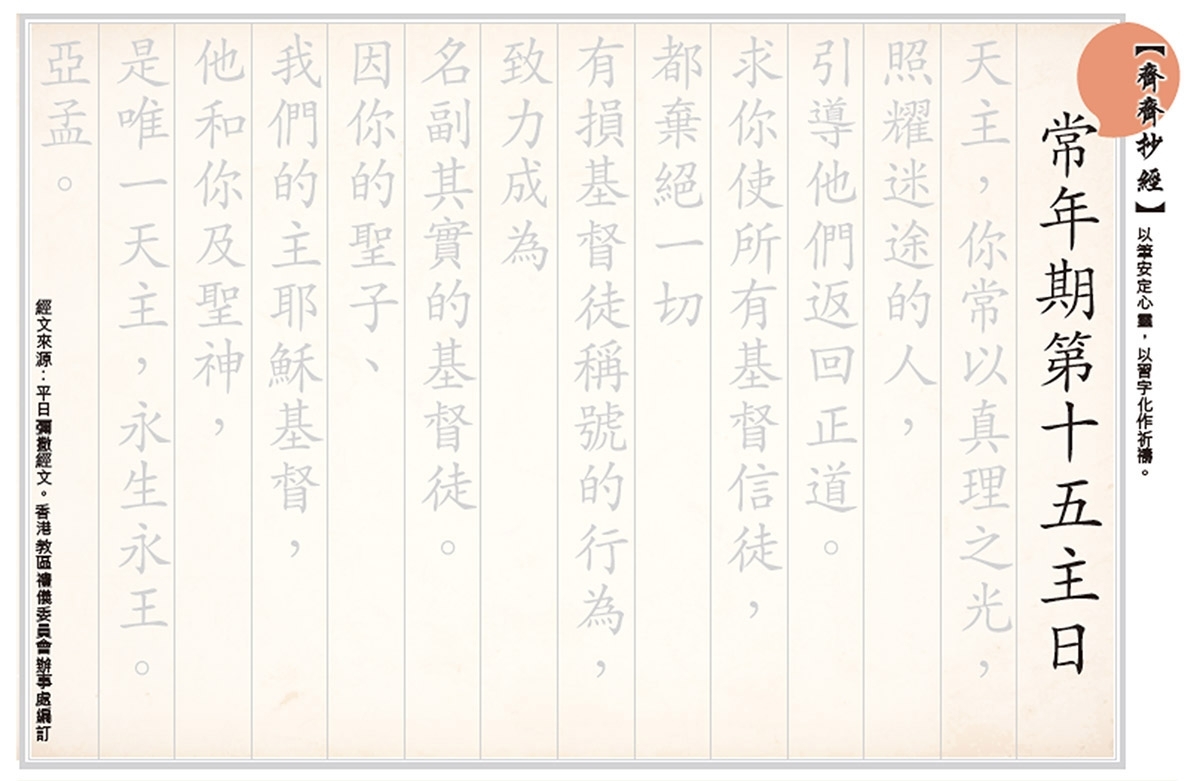 【齊齊抄經】以筆安定心靈，以習字化作祈禱。
常年期第十五主日
天主，你常以真理之光，
照耀迷途的人，
引導他們返回正道。
求你使所有基督信徒，
都棄絕一切
有損基督徒稱號的行為，
致力成為
名副其實的基督徒。
因你的聖子、
我們的主耶穌基督，
他和你及聖神，
是唯一天主，永生永王。
亞孟。
經文來源：平日彌撒經文。香港教區禮儀委員會辦事處編訂